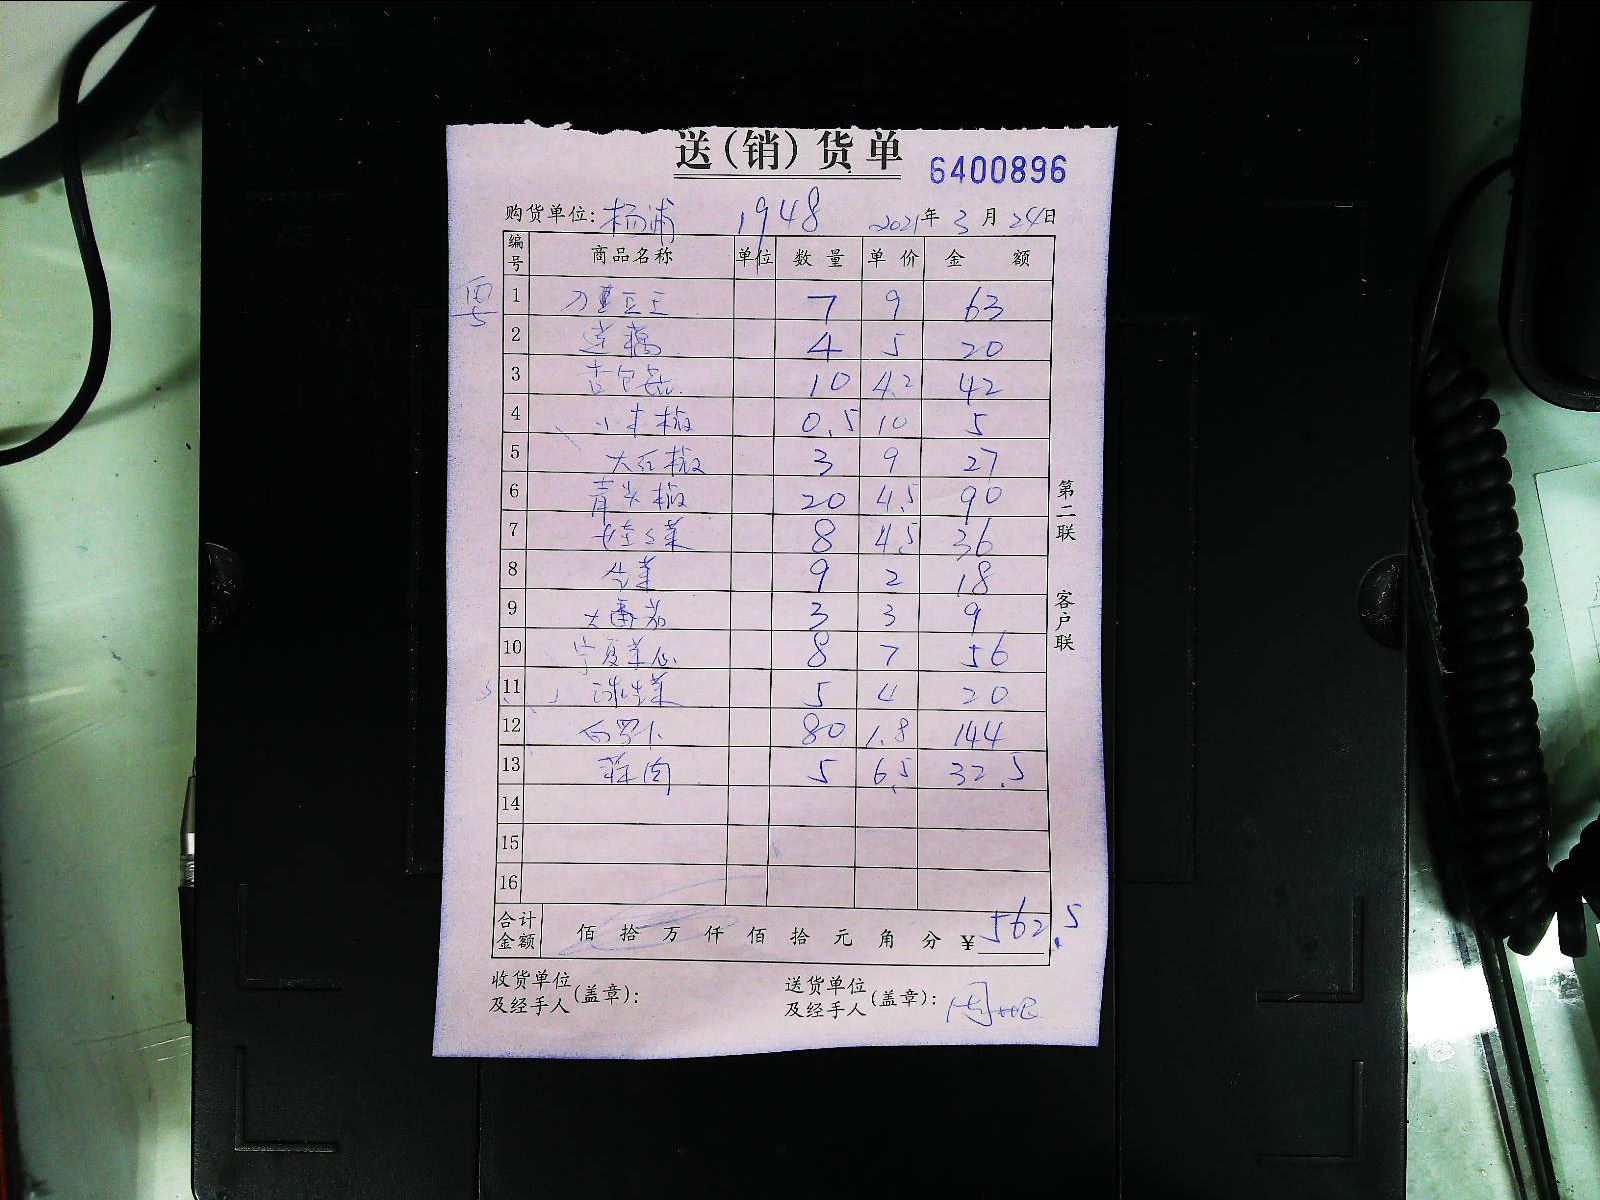 送(销)货单 6400896
购货单位: 杨浦 1948 2021年3月24日
编号 商品名称 单位 数量 单价 金额
1 刀豆王 7 9 63
2 莲藕 4 5 20
3 10 4.2 42
4 小米椒 0.5 10 5
5 大红椒 3 9 27
6 青尖椒 20 4.5 90
7 娃娃菜 8 4.5 36
8 生菜 9 2 18
9 大番茄 3 3 9
10 宁夏菜心 8 7 56
11 球生菜 5 4 20
12 白罗卜 80 1.8 144
13 蒜肉 5 6.5 32.5
14
15
16
合计金额 佰拾万仟佰拾元角分 ¥562.5
收货单位及经手人(盖章):
送货单位及经手人(盖章): 周
第二联 客户联